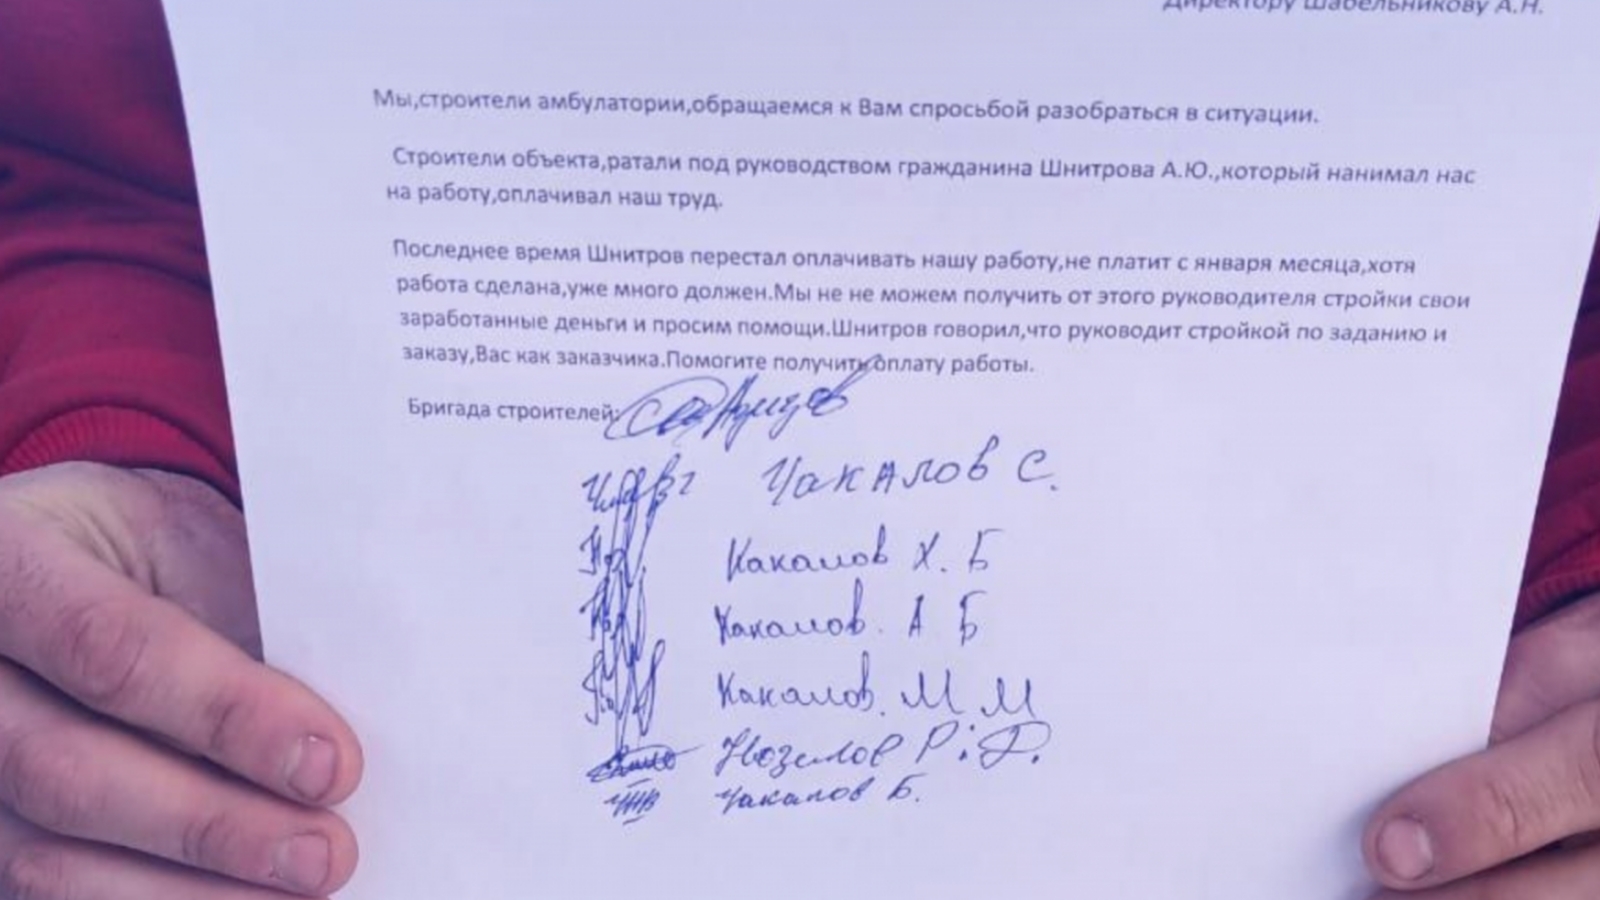 Директору Шабельникову А.Н.
Мы,строители амбулатории,обращаемся к Вам спросьбой разобраться в ситуации.
Строители объекта,ратали под руководством гражданина Шнитрова А.Ю.,который нанимал нас
на работу,оплачивал наш труд.
Последнее время Шнитров перестал оплачивать нашу работу,не платит с января месяца,хотя
работа сделана,уже много должен.Мы не не можем получить от этого руководителя стройки свои
заработанные деньги и просим помощи.Шнитров говорил,что руководит стройкой по заданию и
заказу,Вас как заказчика.Помогите получить оплату работы.
Бригада строителей:
Чакалов С.
Какалов Х. Б
Какалов. А Б
Какалов. М М
Р. Ф.
Чакалов Б.